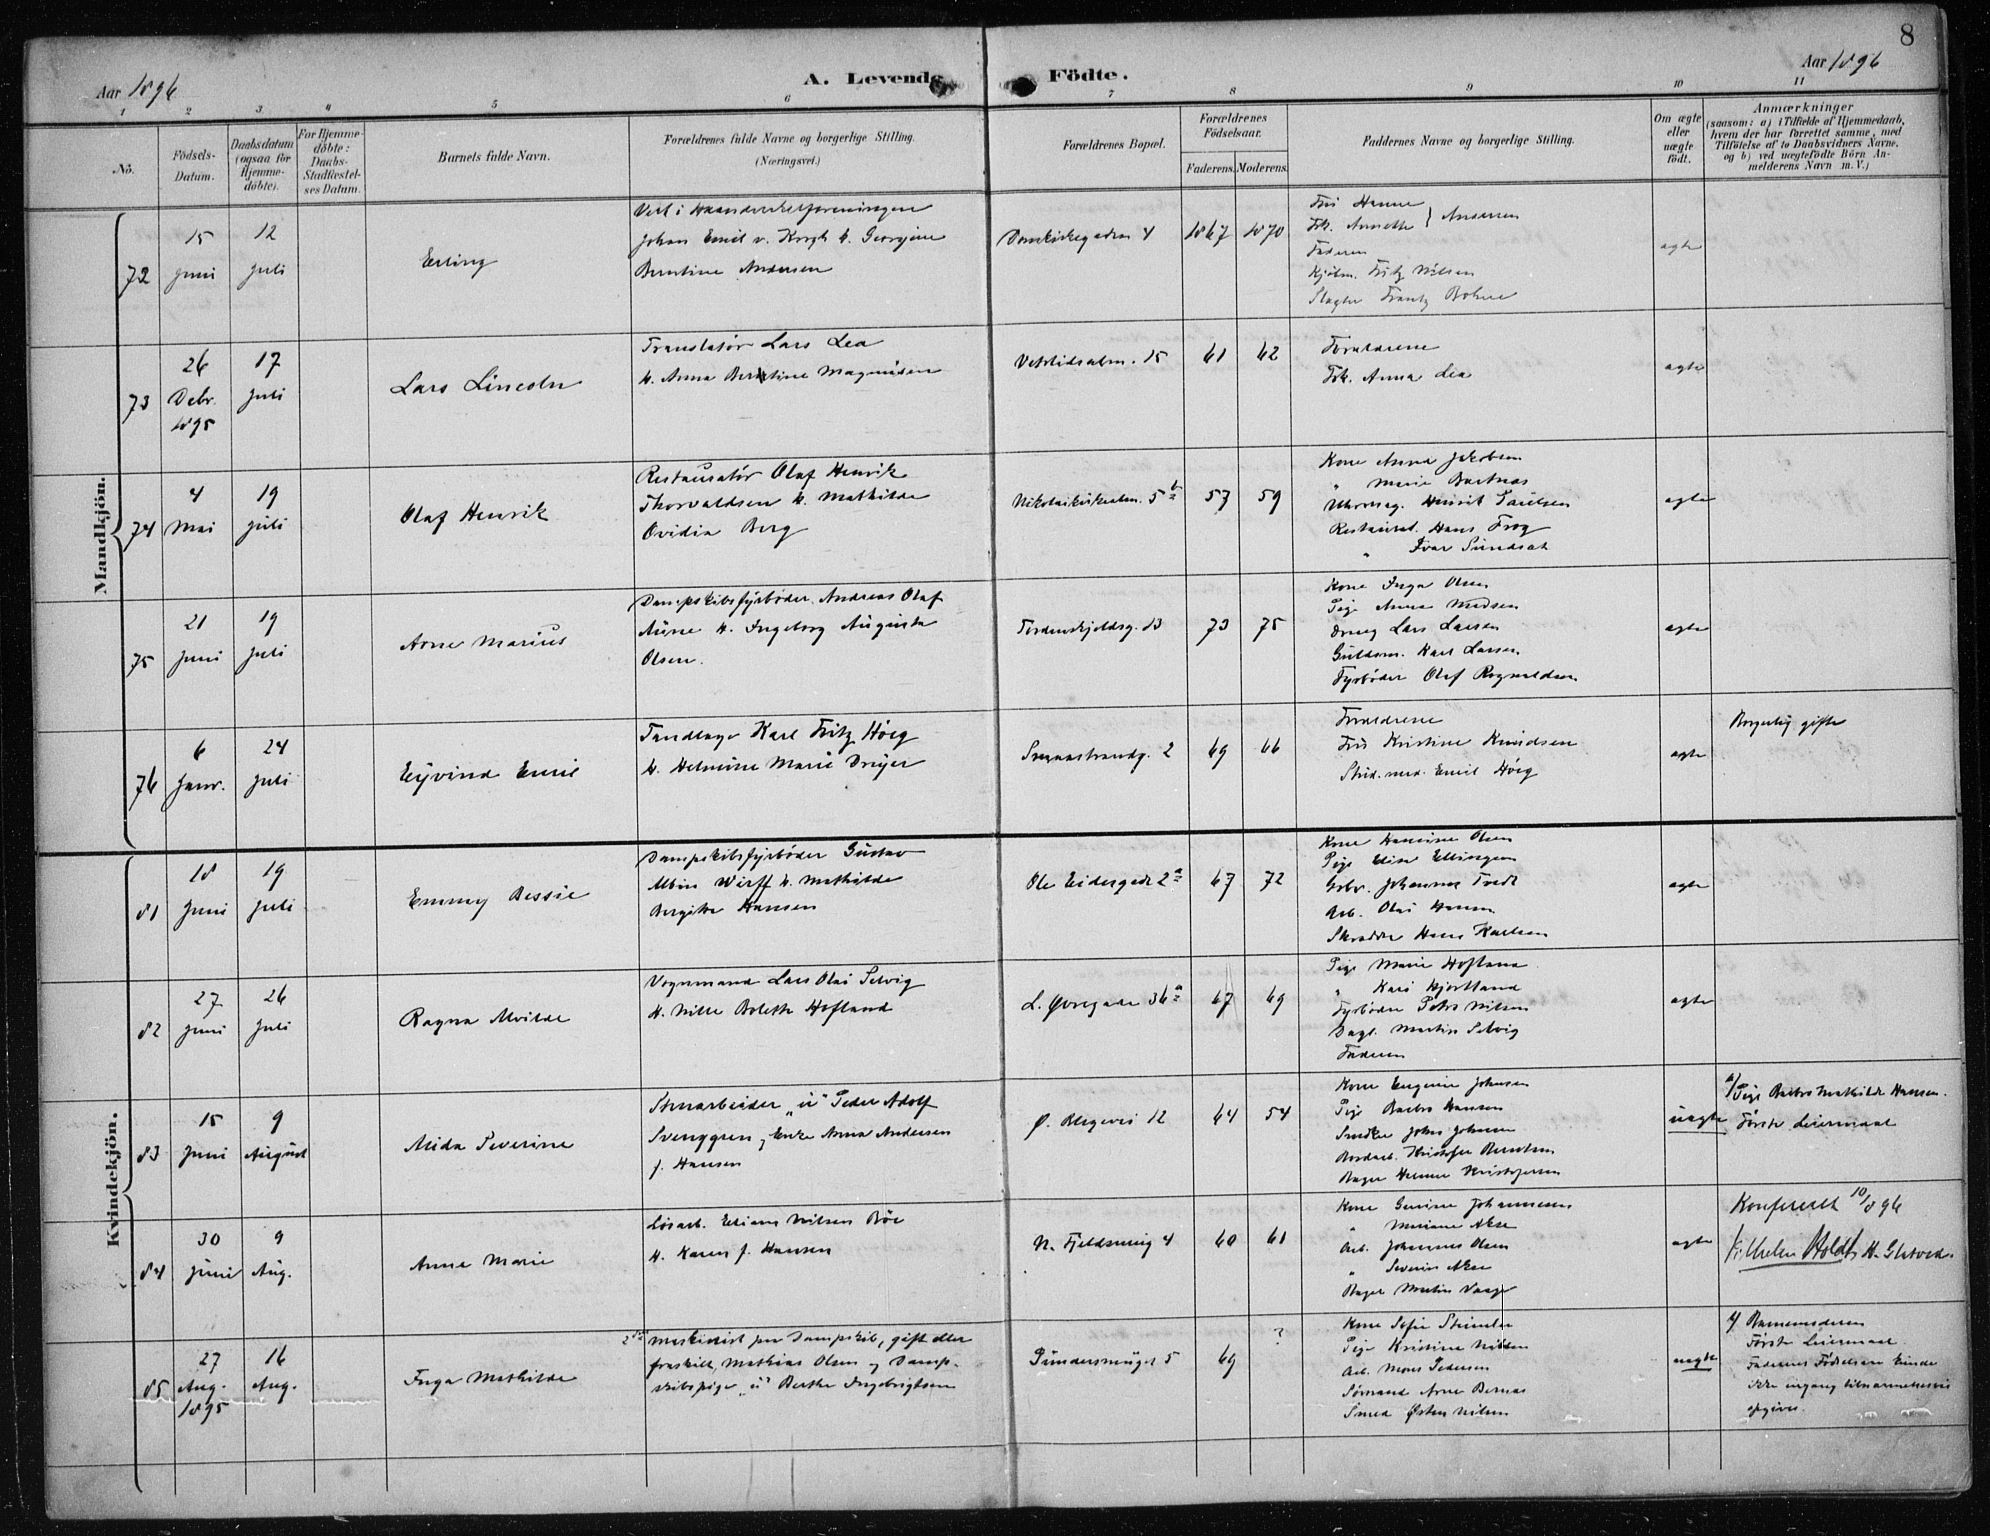 8
Aar 1896
A. Levende Födte.
Aar 1896
1 2 3 4 5 6 7 8 9 10 11
No.
Födsels-Datum.
Daabsdatum (ogsaa for Hjemme-döbte).
For Hjemme-döbte: Daabs-Stadfæstel-ses Datum.
Barnets fulde Navn.
Forældrenes fulde Navne og borgerlige Stilling.
(Næringsvei.)
Forældrenes Bopæl.
Forældrenes Födselsaar.
Faderens. Moderens.
Faddernes Navne og borgerlige Stilling.
Om ægte eller uægte födt.
Anmærkninger
(saasom: a) i Tilfælde af Hjemmedaab, hvem der har forrettet samme, med Tilföielse af to Daabsvidners Navne, og b) ved uægtefödte Börn An-melderens Navn m. V.)
Mandkjön.
72
15 Juni
12 Juli
Erling
Vert i Haandverkerforeningen
Johan Emil v. Krogh & Georgine
Berntine Andersen
Domkirkegaden 4
1867 1870
Frk. Annette } Andersen
Faderen
Kjøbm. Fritz Nilsen
Slagter Frantz Bohne
ægte
73
26 Debr. 1895
17 Juli
Lars Lincoln
Translatør Lars Lea
& Anna Berntine Magnusen
Vetrlidsalm. 15
61 62
Forældrene
Frk. Anna Lea
ægte
74
4 Mai
19 Juli
Olaf Henrik
Restauratør Olaf Henrik
Thorvaldsen & Mathilde
Ovidia Berg
Nikolaikirkealm. 5 b
57 59
Kone Anna Jakobsen
" Marie
Uhrmag. Henrik Paulsen
Restaurat. Hans
" Ivar
ægte
75
21 Juni
19 Juli
Arne Marius
Dampskibsfyrbøder Andreas Olaf
Aune & Ingeborg Augusta
Olsen.
Tordenskjoldsg. 13
73 75
Kone Inga Olsen
Pige Anna Madsen
Dreng Lars Larsen
Guldsm. Karl Larsen
Fyrbøder Olaf Rognaldsen
ægte
76
6 Janr.
24 Juli
Eyvind Emil
Tandlæge Karl Fritz Høeg
& Helmine Marie Dreyer
Smaastrandg. 2
69 66
Forældrene
Fru Kristine Knudsen
Stud. med. Emil Høeg
ægte
Borgerlig gifte
Kvindekjön.
81
18 Juni
19 Juli
Emmy Bessie
Dampskibsfyrbøder Gustav
Albin Wirff & Mathilde
Bergitte Hansen
Ole Eidesgade 2 a
67 72
Kone Hansine Olsen
Pige Elise Ellingsen
Johannes Tvedt
Arb. Olai Hansen
Skrædder Hans Karlsen
ægte
82
27 Juni
26 Juli
Ragna Alvilde
Vognmand Lars Olai Selvig
& Nille Bolette Hofland
L. Øvregade 36 a
67 69
Pige Marie Hofland
" Kari Hjortland
Fyrbøder Peter Nilsen
Dagl. Martin Selvig
Faderen
ægte
83
15 Juni
9 August
Alida Severine
Stenarbeider "u" Peder Adolf
Svenggren, Enke Anna Andersen
f. Hansen
Ø. Blegevei 12
64 54
Kone Eugenie Johnsen
Pige Barbro Hansen
Snedker John Johnsen
Bordarb. Kristofer Berntsen
Bager Kristofersen
uægte
a/ Pige Barbro Mathilde Hansen.
Første Leiermaal
84
30 Juni
9 Aug.
Anna Marie
Løsarb. Elias Nilsen Bøe
& Karen f. Hansen
N. Fjeldsmug 4
60 61
Kone Gurine Johannesen
" Mariane
Arb. Johannes Olsen
" Severin
Bager Martin Vaage
ægte
Konfereret 10/8 96
Vilhelm Holdt
85
27 Aug. 1895
16 Aug.
Inga Mathilde
2den Maskinist paa Dampskib, gift eller
fraskilt, Mathias Olsen og Damp-
skibspige "u" Berthe Ingebrigtsen
Pundersmuget 5
69 ?
Kone Sofie
Pige Kristine Nilsen
Arb. Mons Pedersen
Sømand Arne Bernas
Smed Østen Nilsen
uægte
a/ Barnemoderen
Første Leiermaal
Faderens Fødselsaar kunde
ikke engang tilnærmelsesvis
opgives.